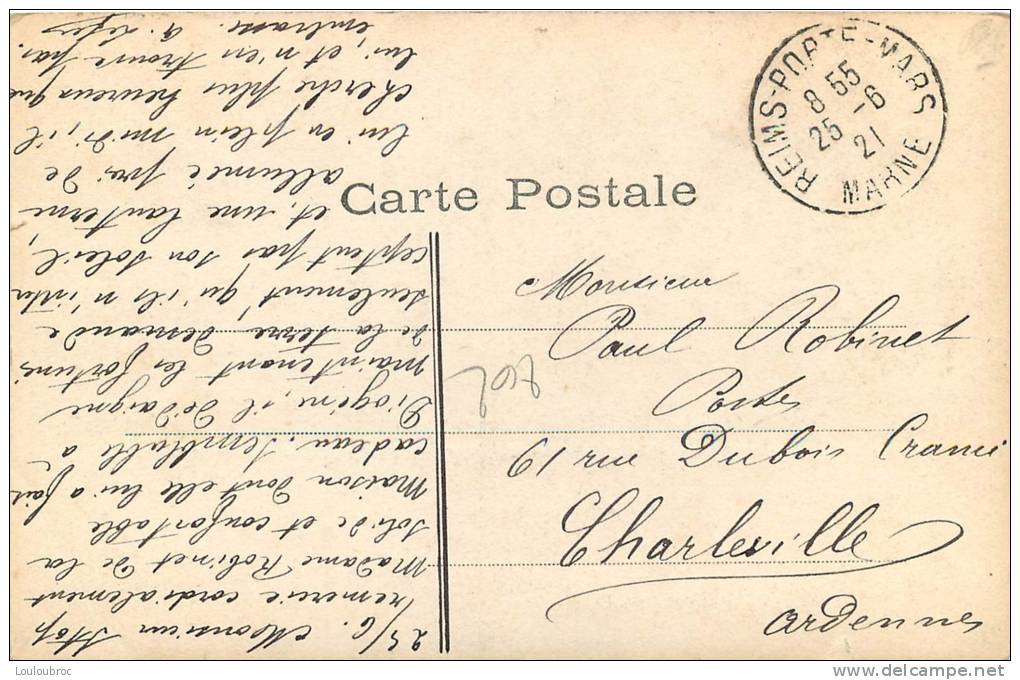 REIMS-PORTE-MARS
8 55
25 -6
21
MARNE
Carte Postale
Monsieur
Paul Robinet
Postes
61 rue Dubois Crancé
Charleville
Ardennes
25/6. Monsieur Stop
remercie cordialement
Madame Robinet de la
solide et confortable
maison dont elle lui a fait
cadeau. Semblable à
Diogène, il dédaigne
maintenant les fortunes
de la terre demande
seulement qu'ils n'inter
ceptent pas son soleil,
et, une lanterne
allumée près de
lui en plein midi, il
cherche plus heureux que
lui, et n'en trouve pas.
Louloubroc
delcampe.net